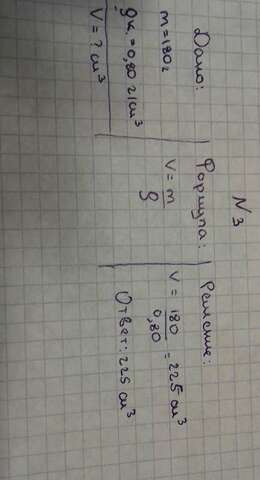 N 3
Дано:
m = 180 г
ρк. = 0,80 г/см³
V = ? см³
Формула:
V = m/ρ
Решение:
V = 180/0,80 = 225 см³
Ответ: 225 см³